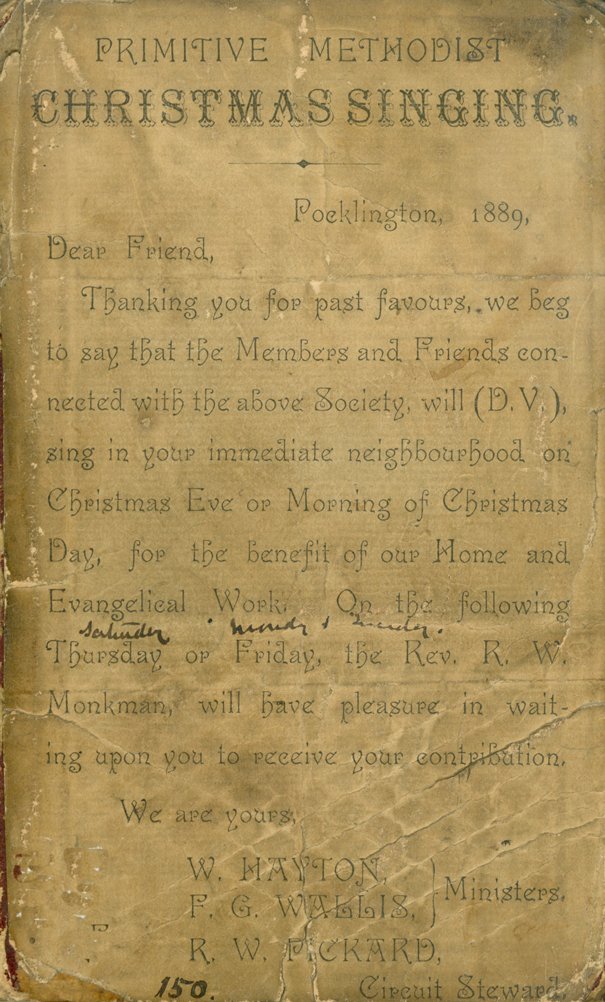 PRIMITIVE METHODIST
CHRISTMAS SINGING.
Pocklington, 1889,
Dear Friend,
Thanking you for past favours, we beg
to say that the Members and Friends con-
nected with the above Society, will (D.V.),
sing in your immediate neighbourhood on
Christmas Eve or Morning of Christmas
Day, for the benefit of our Home and
Evangelical Work. On the following
Saturday Monday &
Thursday or Friday, the Rev. R. W.
Monkman, will have pleasure in wait-
ing upon you to receive your contribution.
We are yours,
W. HAYTON,
F. G. WALLIS,
Ministers.
R. W. PICKARD,
150. Circuit Steward